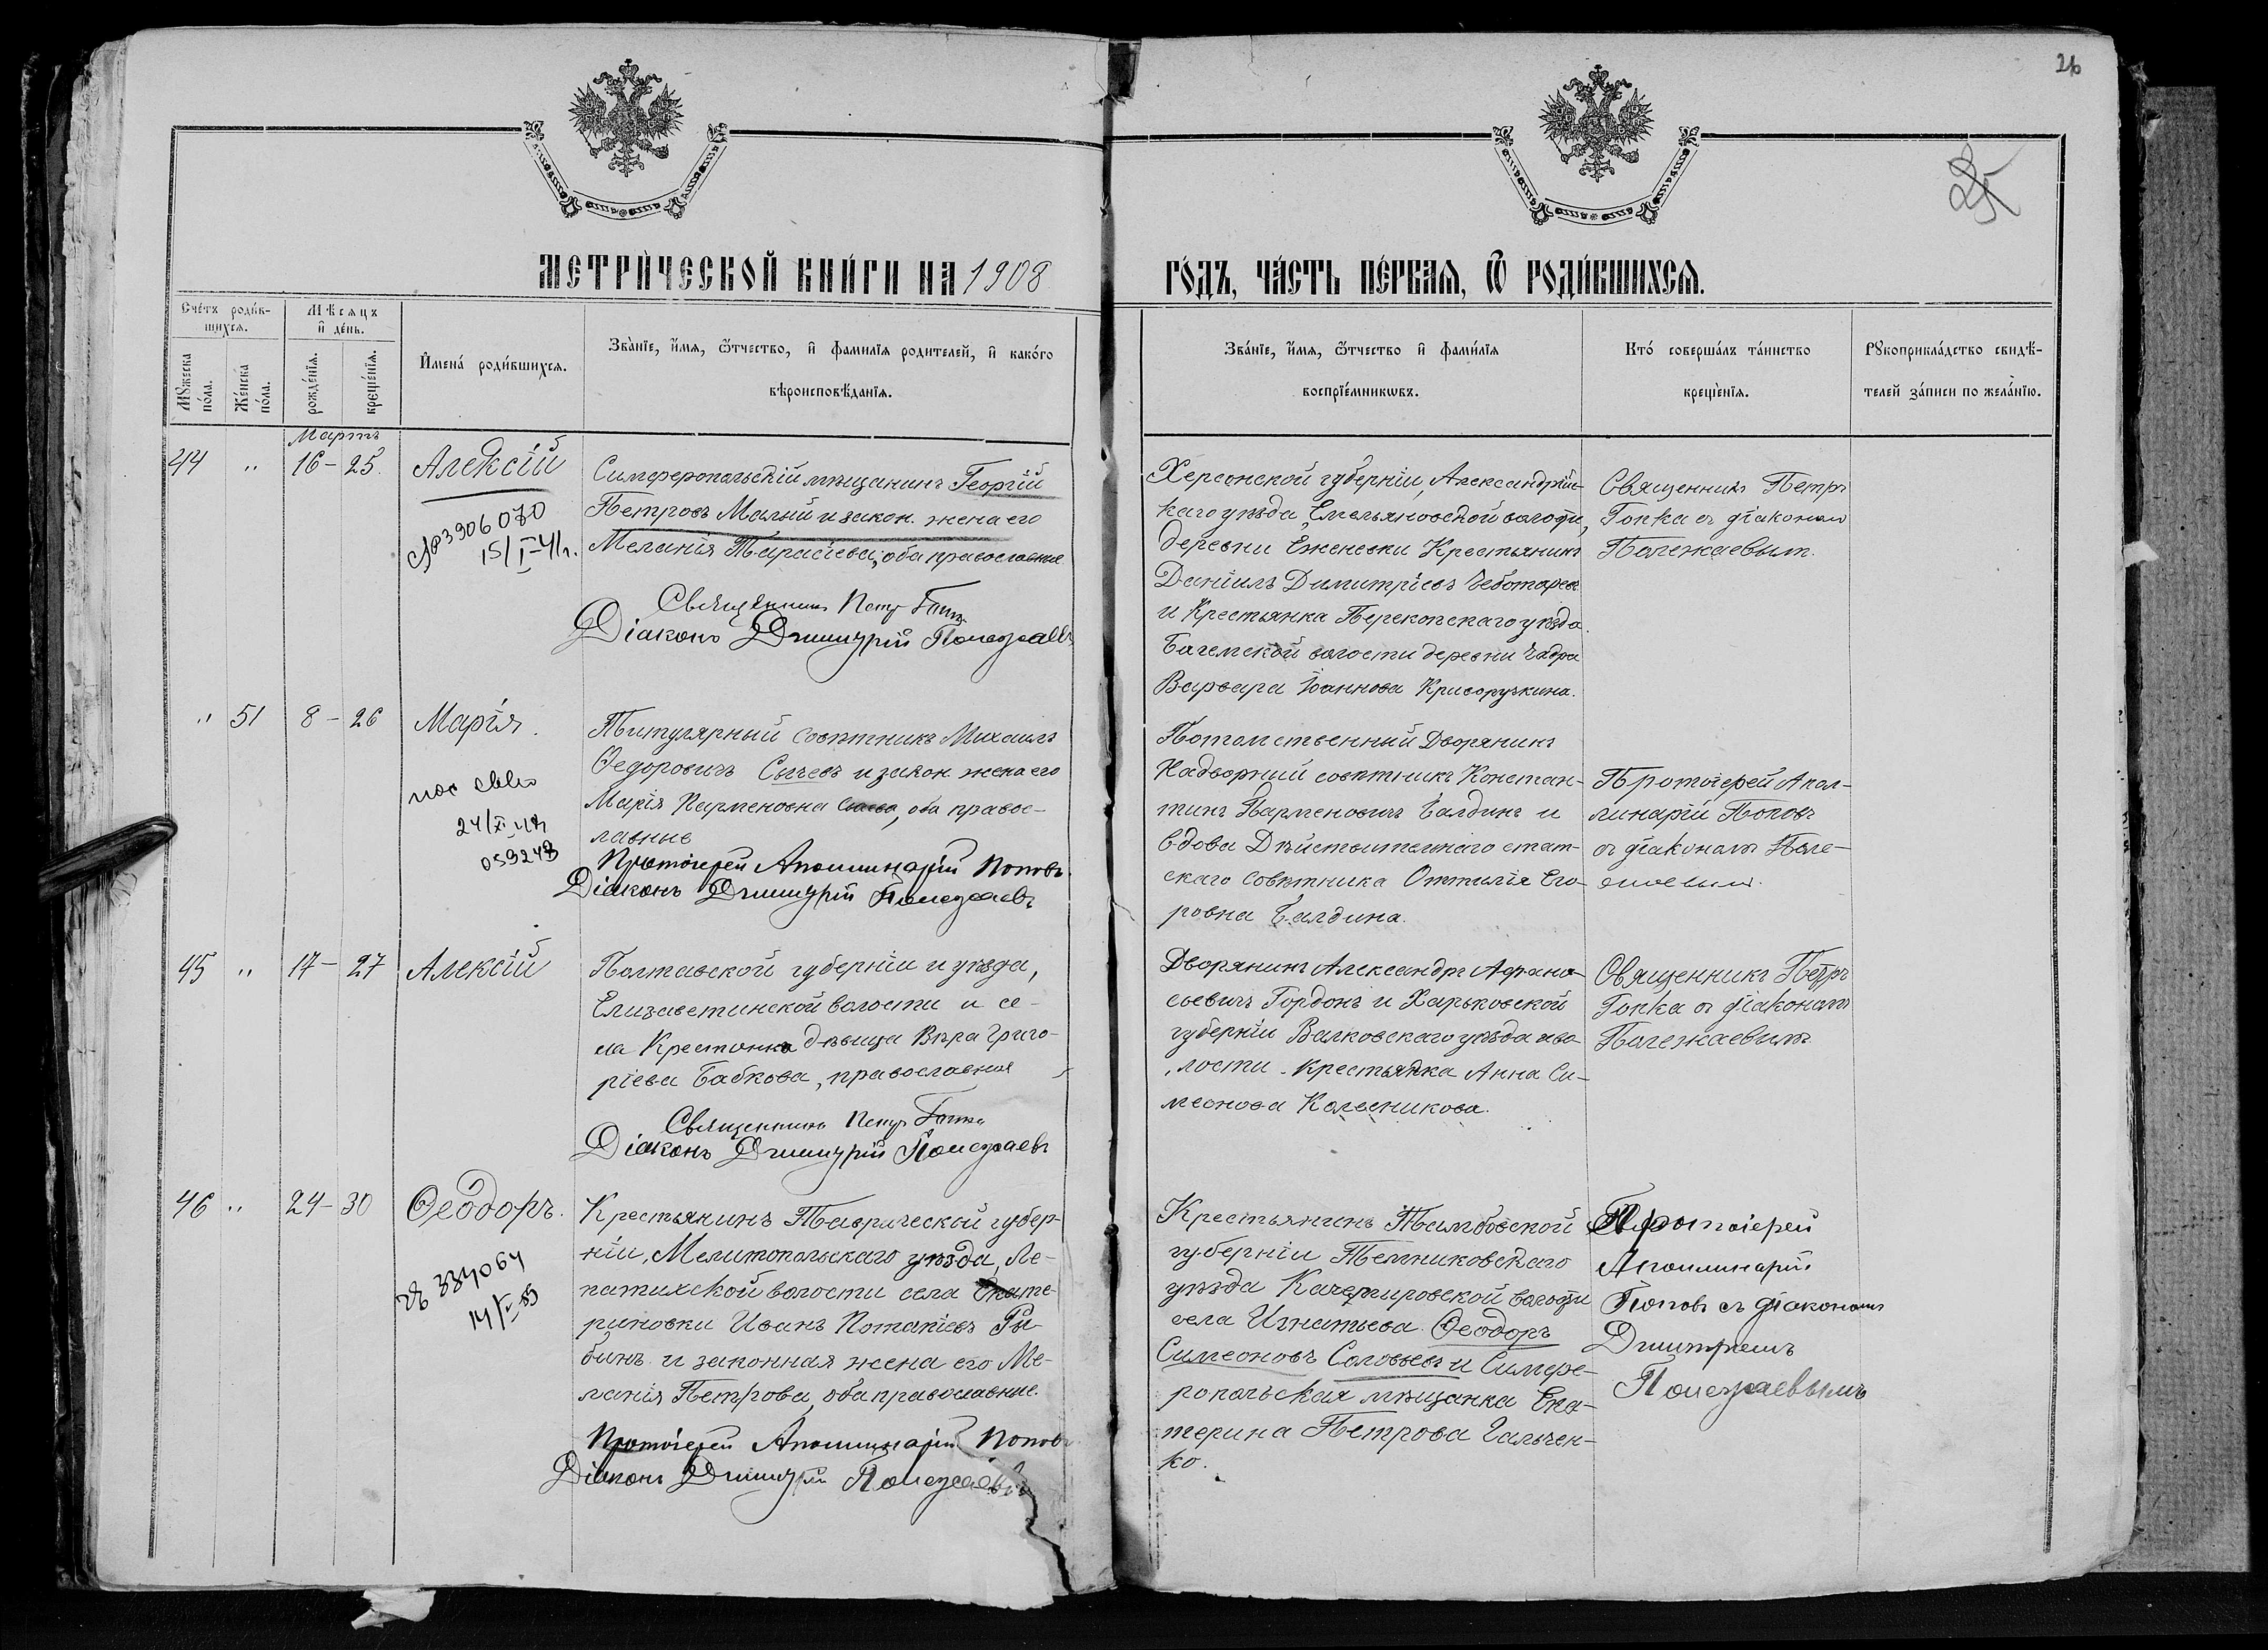 26
25
МЕТРИЧЕСКОЙ КНИГИ НА 1908
ГОДЪ, ЧАСТЬ ПЕРВАЯ, Ѿ РОДИВШИХСЯ.
Счетъ родив-
шихся.
Мужеска
пола.
Женска
пола.
Мѣсяцъ
и день.
рожденія.
крещенія.
Имена родившихся.
Званіе, имя, ѿтчество, и фамилія родителей, и какого
вѣроисповѣданія.
Званіе, имя, ѿтчество и фамилія
воспріемникѡвъ.
Кто совершалъ таинство
крещенія.
Рукоприкладство свидѣ-
телей записи по желанію.
Мартъ
44 " 16-25. Алексій
3906070
15/I-41г.
Симферопольскій мѣщанинъ Георгій
Петровъ Малый и закон. жена его
Меланія Тарасіева, оба православные
Священникъ Петр Гопка
Діаконъ Димитрій Полежаевъ
Херсонской губерніи, Александрій-
каго уѣзда, Емельяновской волости,
деревни Еженевки Крестьянинъ
Даніилъ Димитріевъ Чеботаревъ
и Крестьянка Перекопскаго уѣзда
Багемской волости деревни Чадра
Варвара Іоаннова Криворучкина.
Священникъ Петръ
Гопка съ діакономъ
Полежаевым.
" 51 8-26 Марія.
24/XI
059248
Титулярный Совѣтникъ Михаилъ
Ѳедоровичъ Сычевъ и закон. жена его
Марія Парменовна, оба правос-
лавные
Протоіерей Аполлинарій Поповъ.
Діаконъ Димитрій Полежаевъ
Потомственный Дворянинъ
Надворный совѣтникъ Констан-
тинъ Парменовичъ Балдинъ и
вдова Дѣйствительнаго стат-
скаго Совѣтника Оттилія Его-
ровна Балдина.
Протоіерей Апол-
линарій Поповъ
съ діакономъ Поле-
жаевым.
45 " 17-27 Алексій
Полтавской губерніи и уѣзда,
Елизаветинской волости и се-
ла Крестьянка дѣвица Вѣра Григо-
ріева Бабкова, православная
Священникъ Петр Гопка
Діаконъ Димитрій Полежаевъ
Дворянинъ Александръ Афана-
сьевичъ Гордонъ и Харьковской
губерніи Валковскаго уѣзда и во-
лости Крестьянка Анна Си-
меонова Колесникова.
Священникъ Петръ
Гопка съ діакономъ
Полежаевымъ
46 " 24-30 Ѳеодоръ.
334064
Крестьянинъ Таврической губер-
ніи, Мелитопольскаго уѣзда, Ле-
патихской волости села Екате-
риновки Иванъ Потапіевъ Ры-
бинъ и законная жена его Ме-
ланія Петрова, оба православные.
Протоіерей Аполлинарій Поповъ
Діаконъ Димитрій Полежаевъ
Крестьянинъ Тамбовской
губерніи Темниковскаго
уѣзда Качемировской волости
села Игнатьева Ѳеодоръ
Симеоновъ Соловьевъ и Симфе-
ропольская мѣщанка Ека-
терина Петрова Гальчен-
ко.
Протоіерей
Аполлинарій
Поповъ съ діакономъ
Димитріемъ
Полежаевымъ